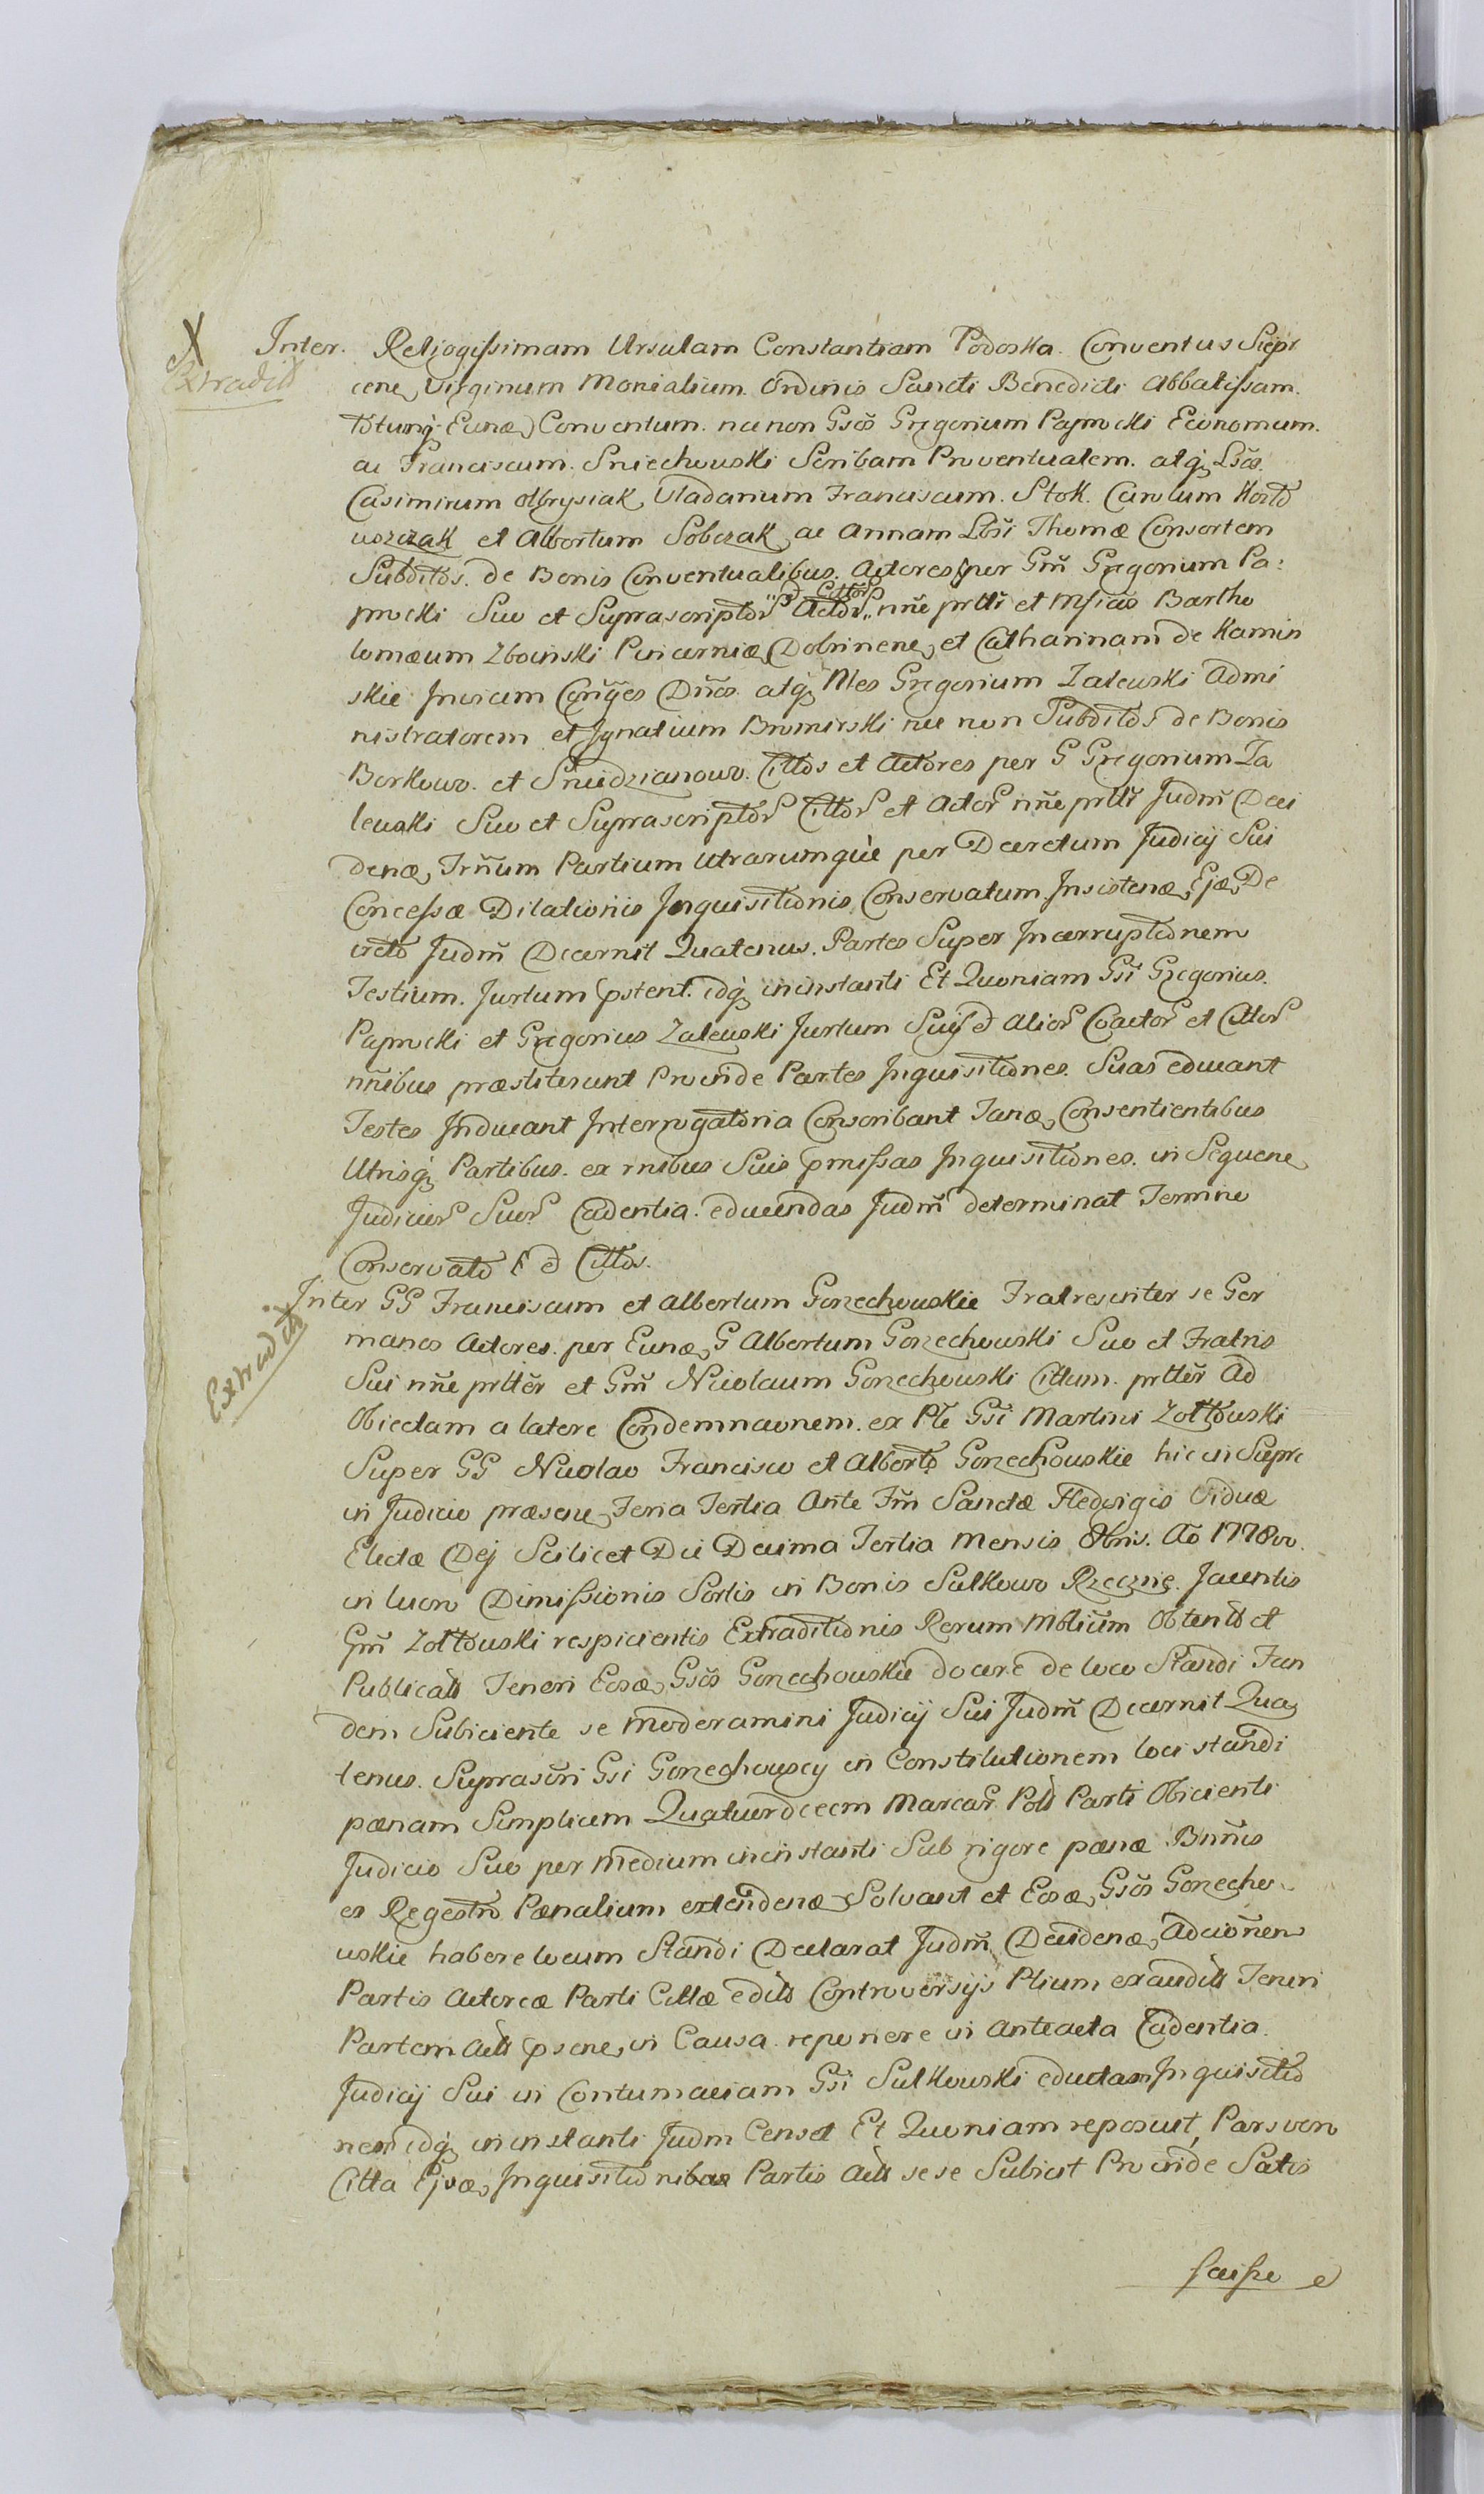 X
Extradit
Inter. Religiosissimam Ursulam Constantiam Podoska. Conventus Siepr
cene, Virginum Monialium. Ordinis Sancti Benedicti Abbatissam.
totumq Eunæ, Conventum. necnon Gsos Gregorium Paprocki Economum.
ac Franciscum. Sniechowski Scribam Proventualem. atq Lsos.
Casimirum Olbrysiak, Vladarium Franciscum. Stok. Carolum
uszczak et Albertum Sobczak, ac Annam Lbsi Thomæ Consortem
Subditos. de Bonis Conventualibus. Actores per Gm Gregorium Pa:
procki Suo et Suprascriptor Actor nne prtti et Mficos Bartho
lomæum Zboinski Pincerniæ Dobrinene, et Catharinam de Kamin
skie Invicem Conges Dnos. atq Nles Gregorium Zalewski Admi
nistratorem et Ignatium Bromirski nec non Subditos de Bonis
Borkowo. et Sniedzianowo. Cittos et Actores per G Gregorium Za
lewski Suo et Suprascriptor Cittor et Actor nne prtti Judm Deci
denæ, Trnum Partium Utrarumque per Decretum Judicij Sui
Concessæ Dilationis Inquisitionis Conservatum Insistenæ, Ejæ, De
creto Judm Decernit Quatenus. Partes Super Incorruptionem
Testium. Jurtum pstent. idq ininstanti Et Quoniam Gsi Gregorius.
Paprocki et Gregorius Zalewski Jurtum Suis et Alior Coactor et Cittor
nnibus præstiterunt Proinde Partes Inquisitiones. Suas educant
Testes Inducant Interrogatoria Conscribant Tanæ, Consentientibus
Utrisq Partibus. ex mnibus Suis pmissas Inquisitiones. in Sequene,
Judicior Suor Cadentia. educendas Judm determinat Termino
Conservato Cittos.
Extradit
Inter GG Franciscum et Albertum Gorzechowskie Fratres inter se Ger
manos Actores. per Eunæ, G Albertum Gorzechowski Suo et Fratris
Sui nne prtter et Gm Nicolaum Gorzechowski Cittum. prtter Ad
Obiectam a latere Condemnaonem. ex Pte Gsi Martini Zołtowski
Super GG Nicolao Francisco et Alberto Gorzechowskie hic in Siepre
in Judicio præsene, Feria Tertia Ante Fm Sanctæ Hedvigis Viduæ
Electæ Dej Scilicet Die Decima Tertia Mensis 8bris. Ao 1778vo.
in lucro Dimissionis Sortis in Bonis Sulkowo Rzeczne. Jacentis
Gm Zołtowski respicientis Extraditionis Rerum Mobilium Obtento et
Publicato Teneri Eosæ, Gsos Gorzechowskie docere de loco Standi Tan
dem Subiciente se Moderamini Judicij Sui Judm Decernit Qua
tenus. Suprascri Gsi Gorzechowscy in Constitutionem loci standi
pænam Simplicem Quatuordecem Marcar Poll Parti Obicienti
Judicio Suo per Medium in instanti Sub rigore pænæ Bnnis
ex Regestro Pænalium extendenæ, Solvant et Eosæ, Gsos Gorzecho
uskie habere locum Standi Declarat Judm Decidenæ, Adcionem
Partis Actoreæ Parti Cittæ edito Controversijs Ptium exaudito Teneri
Partem Acto psene, in Causa. reponere in Anteacta Cadentia.
Judicij Sui in Contumaciam Gsi Sulkowski eductam Inquisitio
nem idq in instanti Judm Censet Et Quoniam reposuit, Pars vero
Citta Ejsæ, Inquisitionibus Partis Acto se se Subicit Proinde Satis